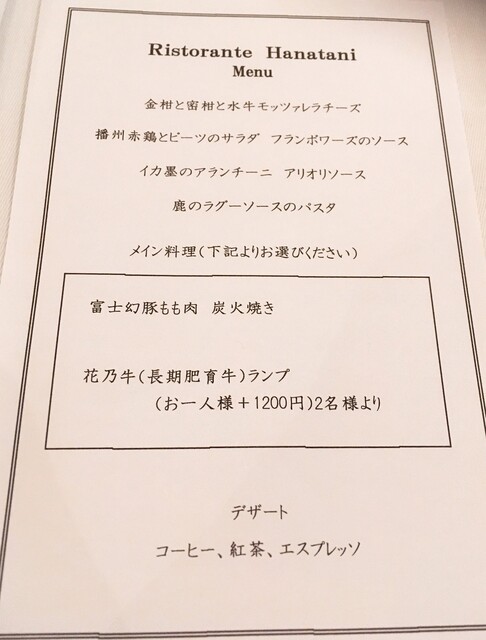 Ristorante Hanatani
Menu
金柑と蜜柑と水牛モッツァレラチーズ
播州赤鶏とビーツのサラダ フランボワーズのソース
イカ墨のアランチーニ アリオリソース
鹿のラグーソースのパスタ
メイン料理(下記よりお選びください)
富士幻豚もも肉 炭火焼き
花乃牛(長期肥育牛)ランプ
(お一人様+1200円)2名様より
デザート
コーヒー、紅茶、エスプレッソ